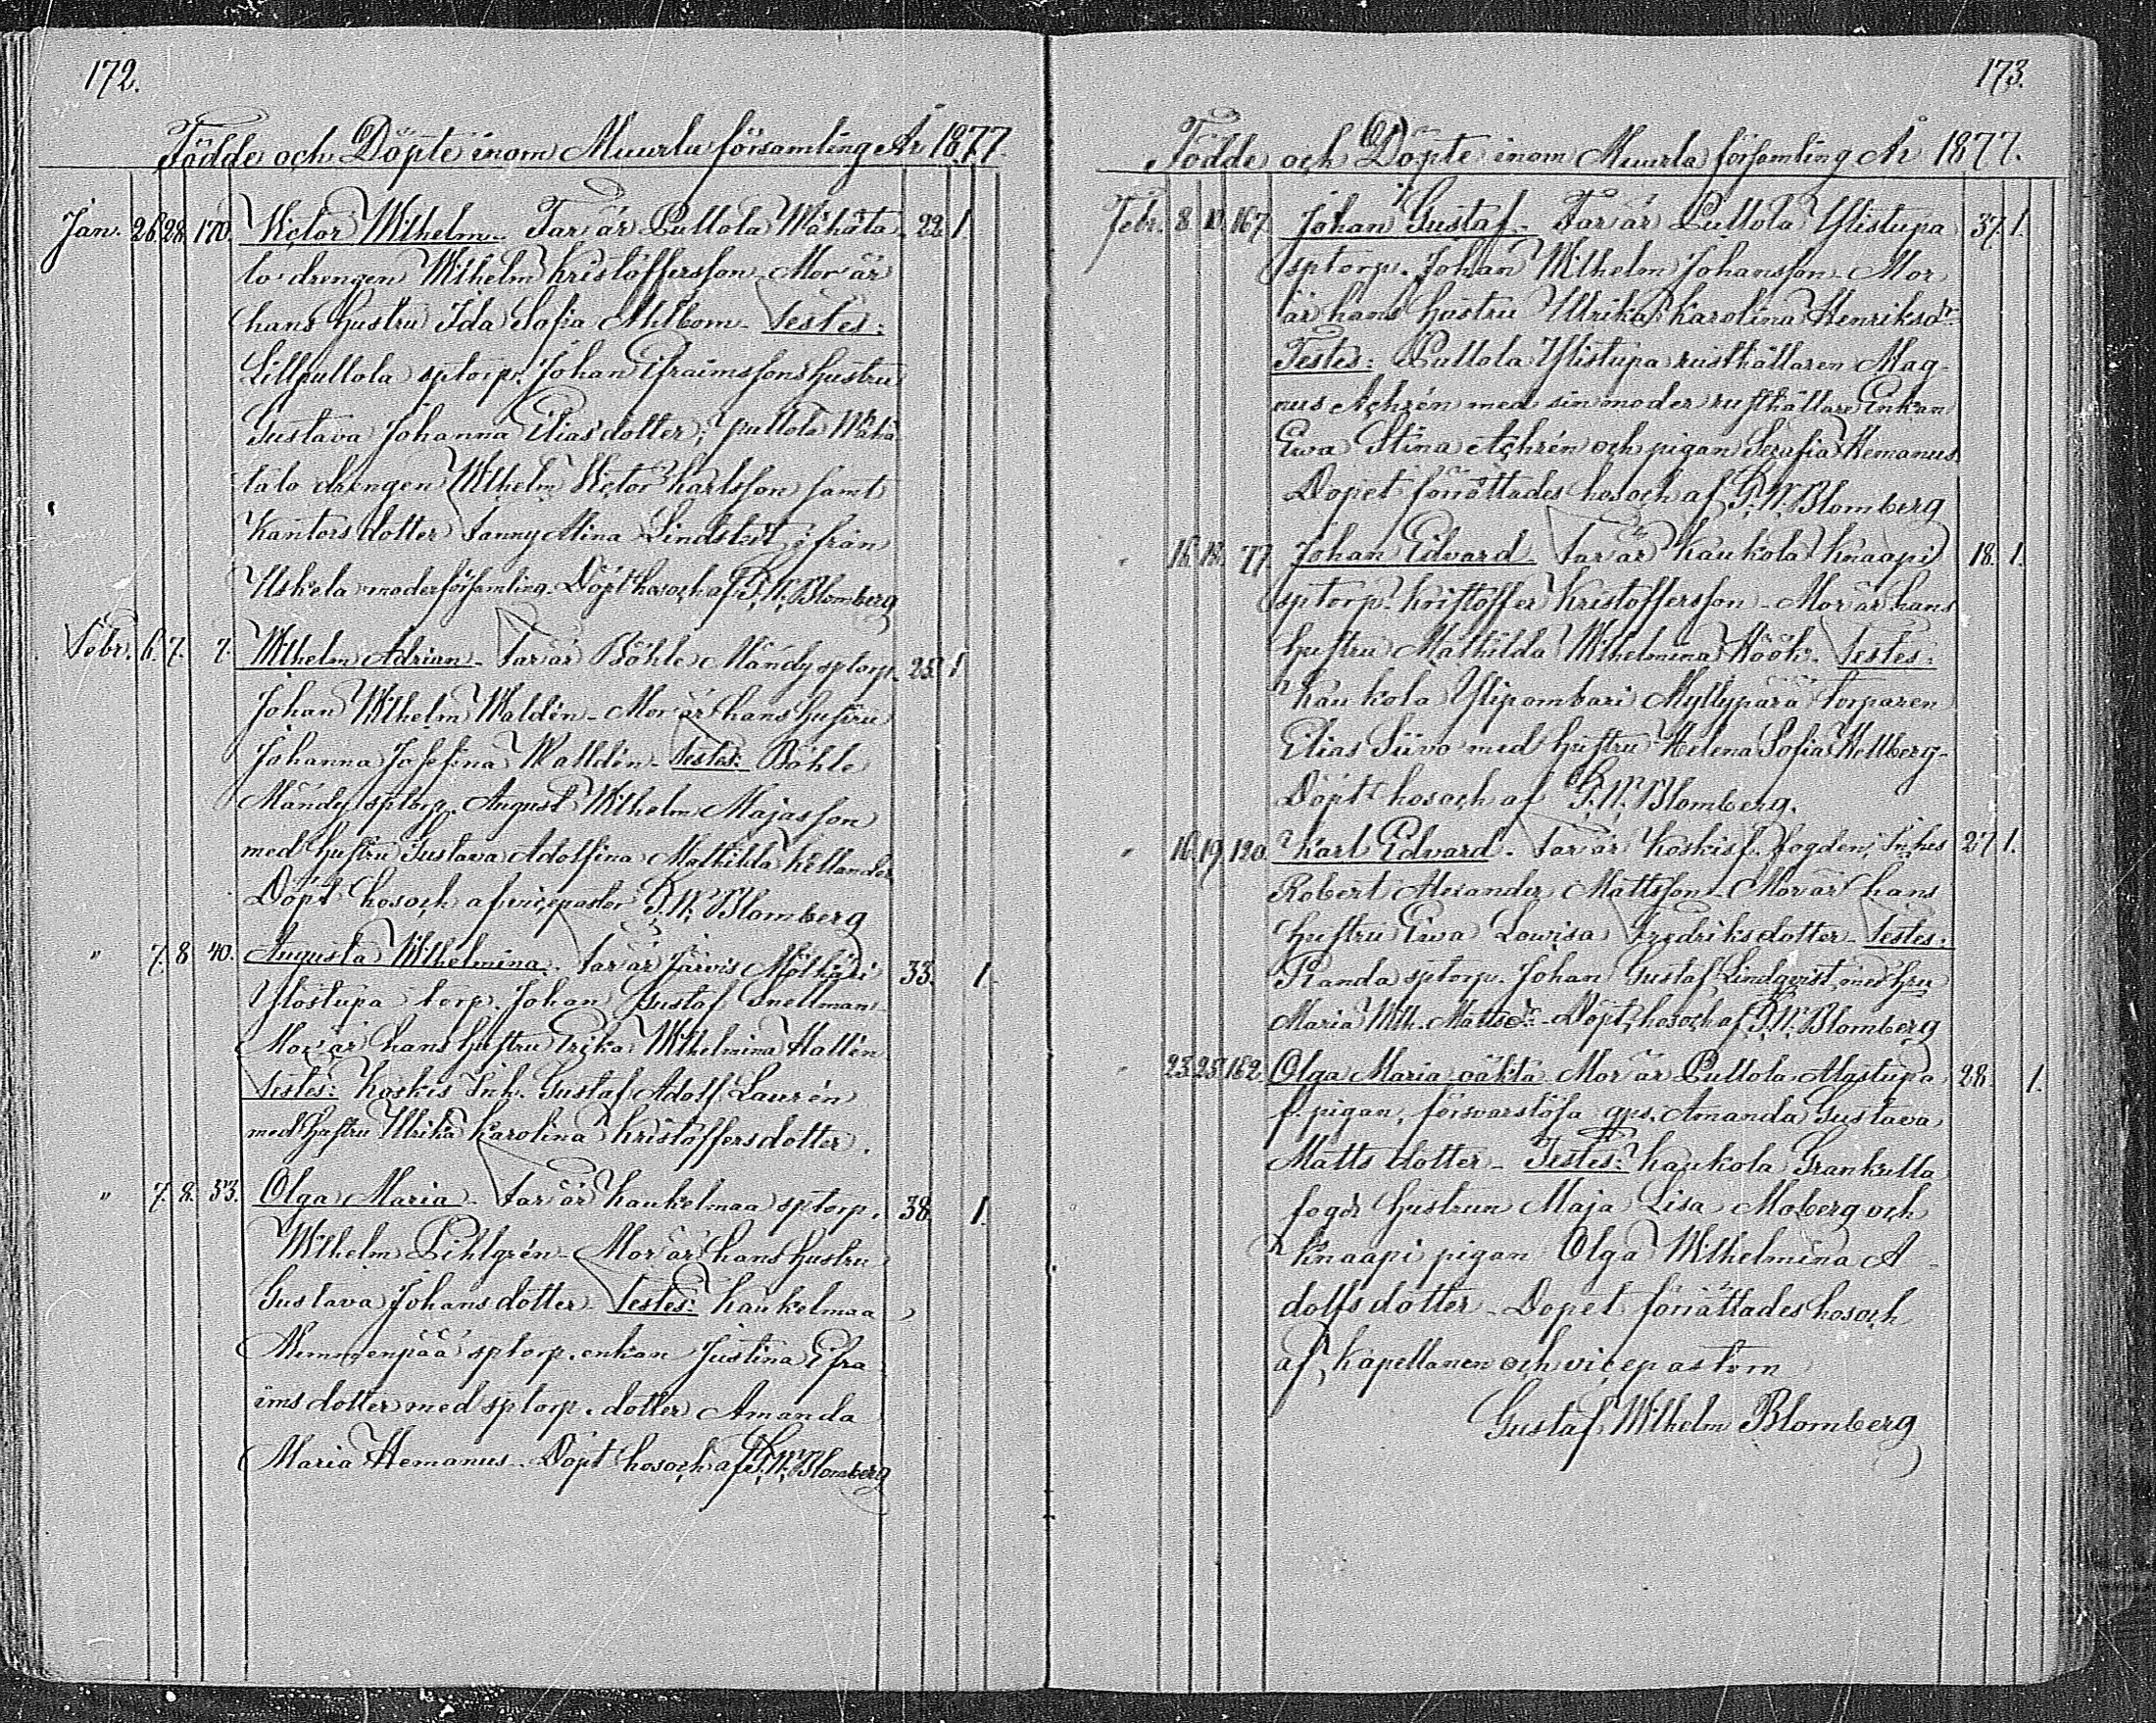 172.
Födde och Döpte inom Muurla församling År 1877.
Jan. 26. 28. 170. Victor Wilhelm - Far är Pullola Wähäta- 22. 1.
lo drengen Wilhelm Kristoffersson - Mor är
hans hustru Ida Sofia Ahlbom - Testes:
Lillpullola sptorp. Johan Efraimssons hustru
Gustava Johanna Eliasdotter; Pullola Wähä-
talo drengen Wilhelm Victor Karlsson samt
Kantors dotter Fanny Mina Lindstedt ifrån
Uskela moderförsamling. Döpt hos och af G. W. Blomberg
Febr. 6. 7. 7. Wilhelm Adrian - Far är Böhle Mändy sptorp. 25. 1
Johan Wilhelm Waldén - Mor är hans hustru
Johanna Josefina Walldén - Testes: Böhle
Mändy sptorp. August Wilhelm Majasson
med hustru Gustava Adolfina Mathilda Kellander
Döpt hos och af vicepastor G. W. Blomberg
" 7. 8. 40. Augusta Wilhelmina - Far är Järvis 33. 1.
Ylöstupa torp. Johan Gustaf Snellman
Mor är hans hustru Erika Wilhelmina Hallén
Testes: Koskis Inh. Gustaf Adolf Laurén
med hustru Ulrika Karolina Kristoffersdotter.
" 7. 8. 53. Olga Maria - Far är Kaukelmaa sptorp. 38. 1.
Wilhelm Pihlgrén - Mor är hans hustru
Gustava Johansdotter - Testes: Kaukelmaa
Nummenpää sptorp. enkan Justina Efra-
imsdotter med sptorp. dotter Amanda
Maria Hemanus - Döpt hos och af G. W. Blomberg
173.
Födde och Döpte inom Muurla församling År 1877.
Febr. 8. 11. 167. Johan Gustaf - Far är Pullola Ylistupa 37. 1.
sptorp. Johan Wilhelm Johansson - Mor
är hans hustru Ulrika Karolina Henriksdr
Testes: Pullola Ylistupa rusthållaren Mag-
nus Achrén med sin moder rusthållare Enkan
Ewa Stina Achrén och pigan Serafia Hemanus
Dopet förrättades hos och af G. W. Blomberg
" 16. 18. 77. Johan Edvard - Far är Kaukola Knaapi 18. 1.
sptorp. Kristoffer Kristoffersson - Mor är hans
hustru Mathilda Wilhelmina Höök - Testes:
Kaukola Ylipombari Myllyperä torparen
Elias Siivo med hustru Helena Sofia Hellberg -
Döpt hos och af G. W. Blomberg.
" 16. 19. 120. Karl Edvard - Far är Koskis f. fogden, Inhes 27 1.
Robert Alexander Mattsson - Mor är hans
hustru Ewa Lowisa Fredriksdotter - Testes:
Randa sptorp. Johan Gustaf Lindqvist med hru
Maria Wilh. Mattsdr - Döpt hos och af G. W. Blomberg
" 23. 25. 162. Olga Maria oäkta - Mor är Pullola Alastupa 28. 1.
f. pigan, försvarslösa qps. Amanda Gustava
Matts dotter - Testes: Kaukola Grankulla
fogds hustrun Maja Lisa Moberg och
Knaapi pigan Olga Wilhelmina A-
dolfs dotter - Dopet förrättades hos och
af, Kapellanen och vicepastorn
Gustaf Wilhelm Blomberg